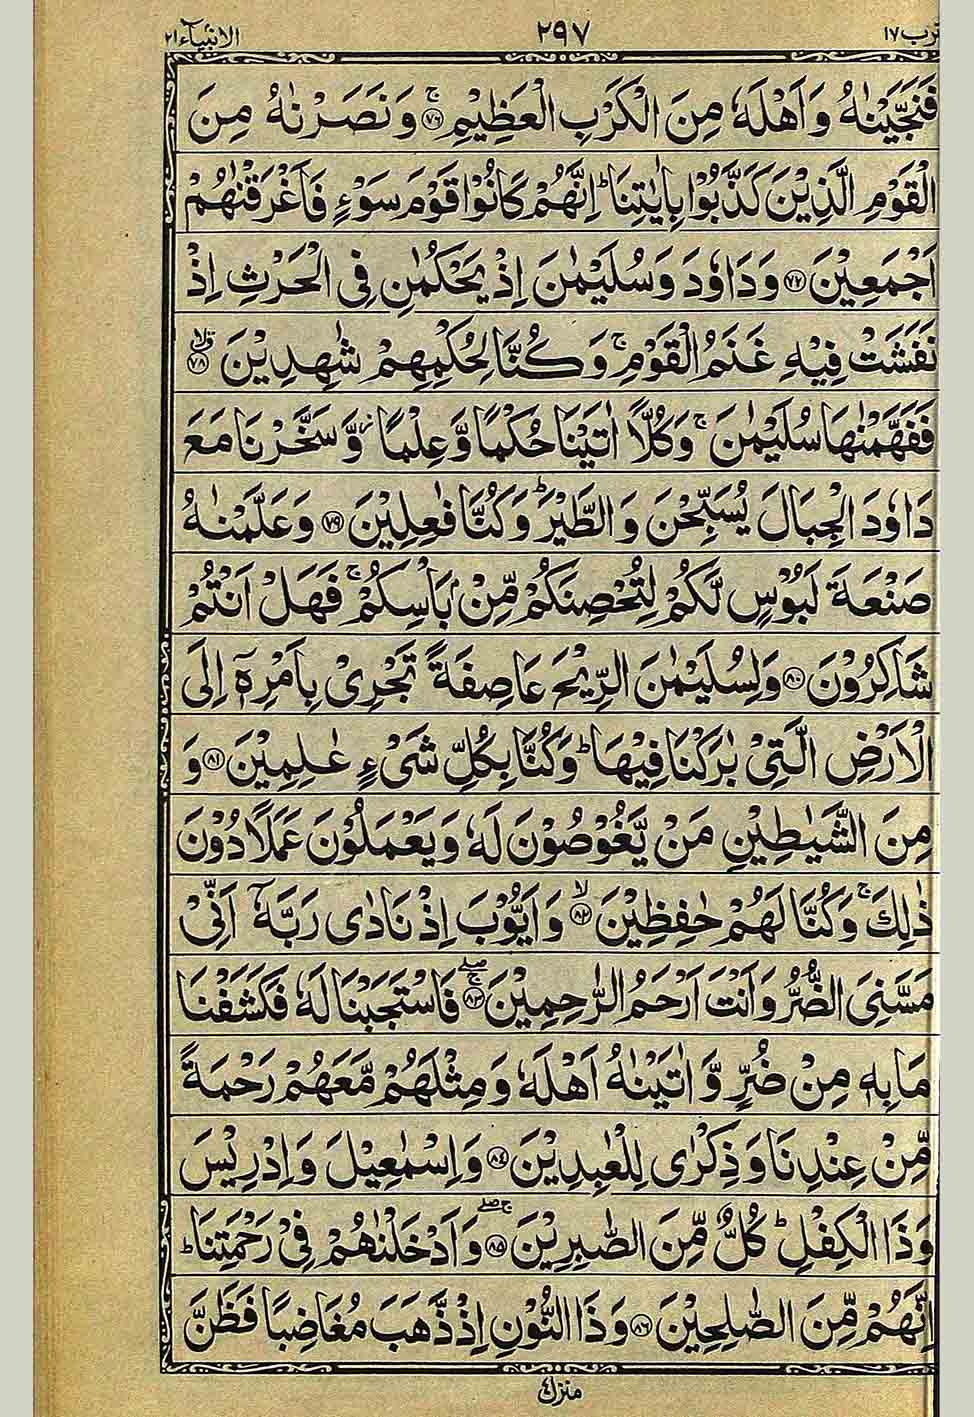 الانبیآء ۲۱
۲۹۷
اقترب ۱۷
فَنَجَّيْنٰهُ وَاَهْلَهٗ مِنَ الْكَرْبِ الْعَظِيْمِ ۚ‏﴿۷۶﴾ وَنَصَرْنٰهُ مِنَ
الْقَوْمِ الَّذِيْنَ كَذَّبُوْا بِاٰيٰتِنَا ؕ اِنَّهُمْ كَانُوْا قَوْمَ سَوْءٍ فَاَغْرَقْنٰهُمْ
اَجْمَعِيْنَ ﴿۷۷﴾ وَدَاوٗدَ وَسُلَيْمٰنَ اِذْ يَحْكُمٰنِ فِى الْحَرْثِ اِذْ
نَفَشَتْ فِيْهِ غَنَمُ الْقَوْمِ ۚ وَكُنَّا لِحُكْمِهِمْ شٰهِدِيْنَ ۙ ﴿۷۸﴾
فَفَهَّمْنٰهَا سُلَيْمٰنَ ۚ وَكُلًّا اٰتَيْنَا حُكْمًا وَّعِلْمًا ؗ وَّسَخَّرْنَا مَعَ
دَاوٗدَ الْجِبَالَ يُسَبِّحْنَ وَالطَّيْرَ ؕ وَكُنَّا فٰعِلِيْنَ ﴿۷۹﴾ وَعَلَّمْنٰهُ
صَنْعَةَ لَبُوْسٍ لَّكُمْ لِتُحْصِنَكُمْ مِّنْۢ بَاْسِكُمْ ۚ فَهَلْ اَنْتُمْ
شَاكِرُوْنَ ﴿۸۰﴾ وَلِسُلَيْمٰنَ الرِّيْحَ عَاصِفَةً تَجْرِىْ بِاَمْرِهٖۤ اِلَى
الْاَرْضِ الَّتِىْ بٰرَكْنَا فِيْهَا ؕ وَكُنَّا بِكُلِّ شَىْءٍ عٰلِمِيْنَ ﴿۸۱﴾ وَ
مِنَ الشَّيٰطِيْنِ مَنْ يَّغُوْصُوْنَ لَهٗ وَيَعْمَلُوْنَ عَمَلًا دُوْنَ
ذٰلِكَ ۚ وَكُنَّا لَهُمْ حٰفِظِيْنَ ۙ ﴿۸۲﴾ وَاَيُّوْبَ اِذْ نَادٰى رَبَّهٗۤ اَنِّىْ
مَسَّنِىَ الضُّرُّ وَاَنْتَ اَرْحَمُ الرّٰحِمِيْنَ ۚۖ ﴿۸۳﴾ فَاسْتَجَبْنَا لَهٗ فَكَشَفْنَا
مَا بِهٖ مِنْ ضُرٍّ وَّاٰتَيْنٰهُ اَهْلَهٗ وَمِثْلَهُمْ مَّعَهُمْ رَحْمَةً
مِّنْ عِنْدِنَا وَذِكْرٰى لِلْعٰبِدِيْنَ ﴿۸۴﴾ وَاِسْمٰعِيْلَ وَاِدْرِيْسَ
وَذَا الْكِفْلِ ؕ كُلٌّ مِّنَ الصّٰبِرِيْنَ ۚۖ ﴿۸۵﴾ وَاَدْخَلْنٰهُمْ فِىْ رَحْمَتِنَا ؕ
اِنَّهُمْ مِّنَ الصّٰلِحِيْنَ ﴿۸۶﴾ وَذَا النُّوْنِ اِذْ ذَّهَبَ مُغَاضِبًا فَظَنَّ
منزل ٤